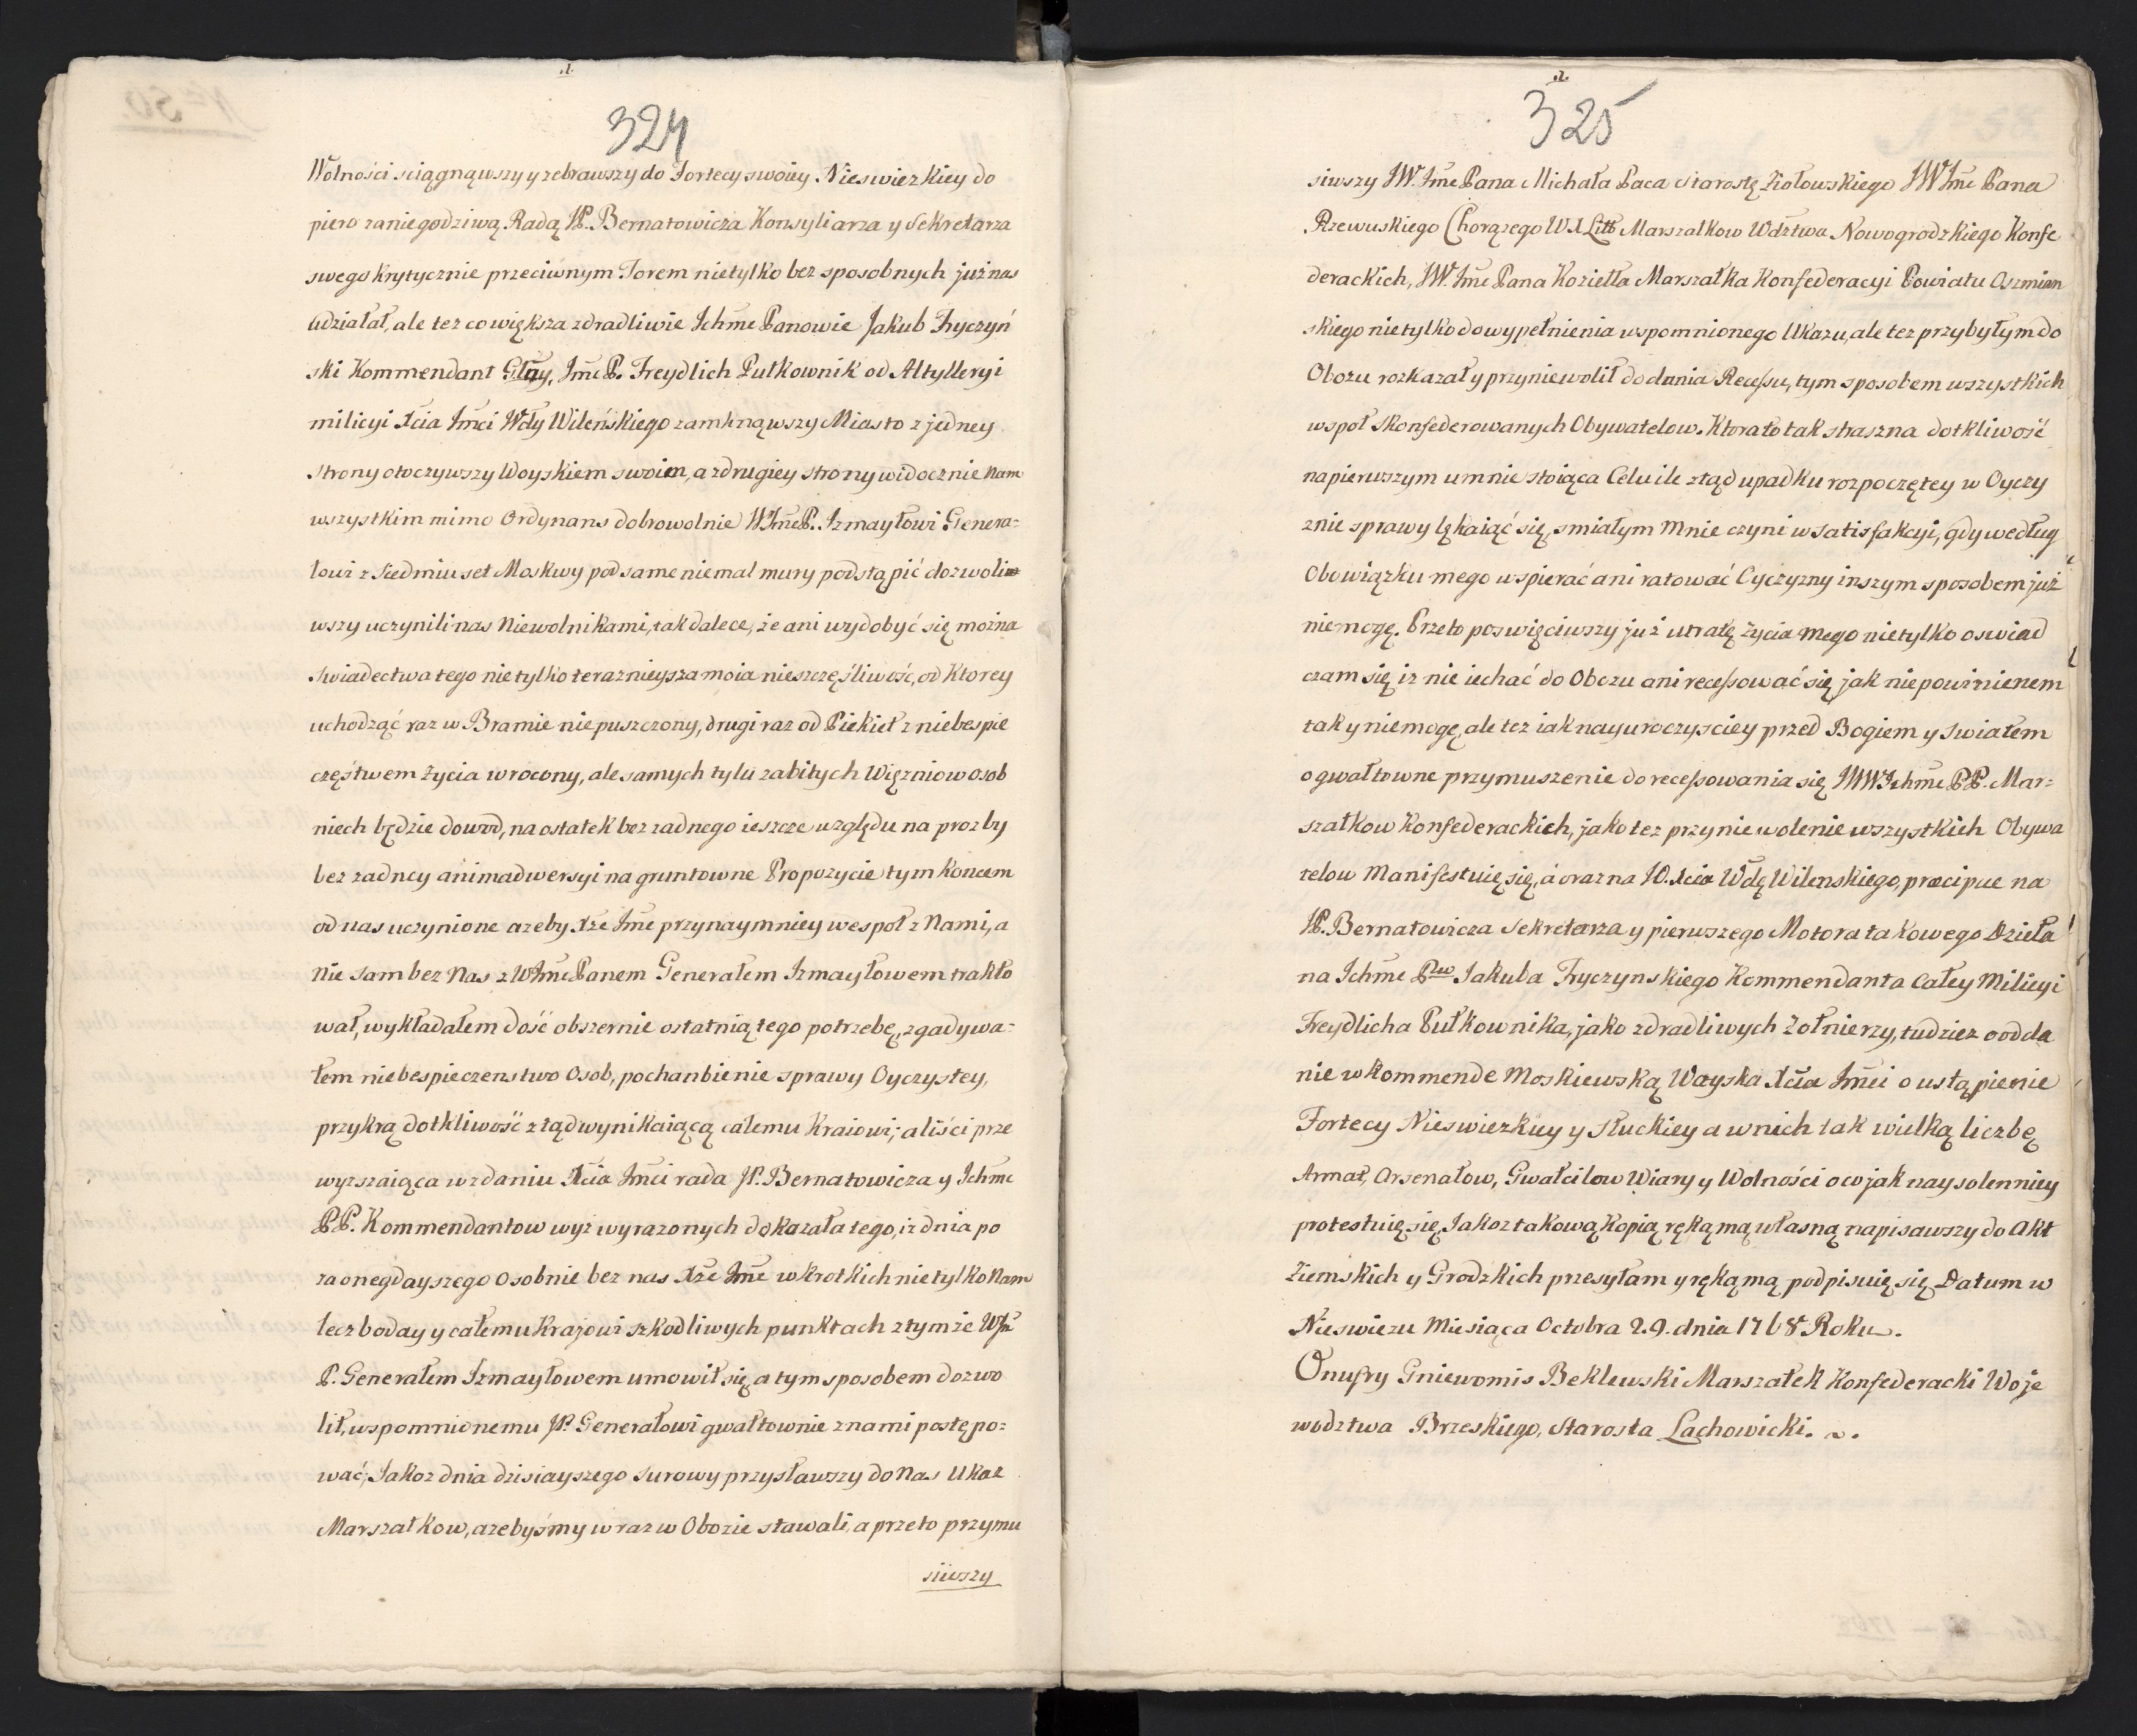 324
Wolności sciągnąwszy y zebrawszy do Fortecy swoiey Nieswiezkiey do
piero zaniegodziwą Radą JP. Bernatowicza Konsyliarza y Sekretarza
swego krytycznie przeciwnym Torem nietylko bez sposobnych już nas
udziałał, ale tez co większa zdradliwie Ichme Panowie Jakub Fryczyń
ski Kommendant Głny, Jmc P. Freydlich Pułkownik od Altylleryi
milicyi Xcia Jmci Wdy Wileńskiego zamknąwszy Miasto z jedney
strony otoczywszy Woyskiem swoim, a zdrugiey strony widocznie nam
wszystkim mimo Ordynans dobrowolnie WJmcP. Izmayłowi Genera=
łowi z siedmiuset Moskwy pod same niemal mury podstąpić dozwoli
wszy uczynili nas Niewolnikami, tak dalece, że ani wydobyć się można
swiadectwa tego nie tylko teraznieysza moia nieszczęśliwość, od Ktorey
uchodząć raz w Bramie nie puszczony, drugi raz od Piekieł z niebespie
częstwem życia wrocony, ale samych tylu zabitych Więzniow osob
niech będzie dowod, na ostatek bez zadnego ieszcze względu na prozby
bez zadney animadwersyi na gruntowne Propozycie tym koncem
od nas uczynione azeby Xże Jmc przynaymniey wespoł z Nami, a
nie sam bez Nas z WJmc Panem Generałem Izmayłowem trakto
wał, wykładałem dość obszernie ostatnią tego potrzebę, zgadywa=
łem niebespieczenstwo Osob, pochanbienie sprawy Oyczystey,
przykrą dotkliwość ztąd wynikaiącą całemu Kraiowi; aliści prze
wyzszaiąca w zdaniu Xcia Jmci rada JP. Bernatowicza y Ichmc
PP. Kommendantow wyż wyrazonych dokazała tego, iz dnia po
zaonegdayszego osobnie bez nas Xże Jmc w krotkich nie tylko Nam
lecz boday y całemu Krajowi szkodliwych punktach z tym że WJm
P. Generałem Izmayłowem umowił się, a tym sposobem dozwo
lił, wspomnionemu JP. Generałowi gwałtownie z nami postępo=
wać; Jakoz dnia dzisiayszego surowy przysławszy do Nas Ukaz
Marszałkow, azebyśmy wraz w Obozie stawali, a przeto przymu
siwszy
325
siwszy JW. Jmc Pana Michała Paca Starostę Ziołowskiego JW Jmc Pana
Rzewuskiego Chorązego W.X. Litt Marszałkow Wdztwa Nowogrodzkiego Konfe
derackich, JW. Jmc Pana Koziełła Marszałka Konfederacyi Powiatu Oszmian
skiego nietylko do wypełnienia wspomnionego Ukazu, ale tez przybyłym do
Obozu rozkazał y przyniewolił do dania Recessu, tym sposobem wszystkich
wspoł Skonfederowanych Obywatelow. Ktora to tak straszna dotkliwość
na pierwszym u mnie stoiąca Celu ile ztąd upadku rozpoczętey w Oyczy
znie sprawy lękaiąć się, smiałym Mnie czyni w Satisfakcyi, gdy według
Obowiązku mego wspierać ani ratować Oyczyzny inszym sposobem już
niemogę. Przeto poswięciwszy już utratę życia mego nietylko oswiad
czam się, iz nie iechać do Obozu ani recessować się, jak niepowinienem
tak y niemogę, ale tez iak nayuroczysciey przed Bogiem y Swiatem
o gwałtowne przymuszenie do recessowania się JWWIchmc PP. Mar=
szałkow Konfederackich, jako tez przyniewolenie wszystkich Obywa
telow Manifestuię się, a oraz na JO. Xcia Wdę Wilenskiego, præcipue na
JP. Bernatowicza Sekretarza y pierwszego Motora takowego Dzieła
na Ichmc Pow Jakuba Fryczynskiego Kommendanta całey Milicyi
Freydlicha Pułkownika, jako zdradliwych Zołnierzy, tudziez o odda
nie w Kommende Moskiewską Woyska Xcia Jmci o ustąpienie
Fortecy Nieswiezkiey y Słuckiey a w nich tak wielką liczbę
Armat, Arsenałow, Gwałcilow Wiary y Wolności o co jak naysolenniey
protestuię się, Jakoz takową Kopią ręką mą własną napisawszy do Akt
Ziemskich y Grodzkich przesyłam y ręką mą podpisuię się, Datum w
Nieswiezu Miesiąca Octobra 29. dnia 1768 Roku.
Onufry Gniewomis Beklewski Marszałek Konfederacki Woje
wodztwa Brzeskiego, Starosta Lachowicki.